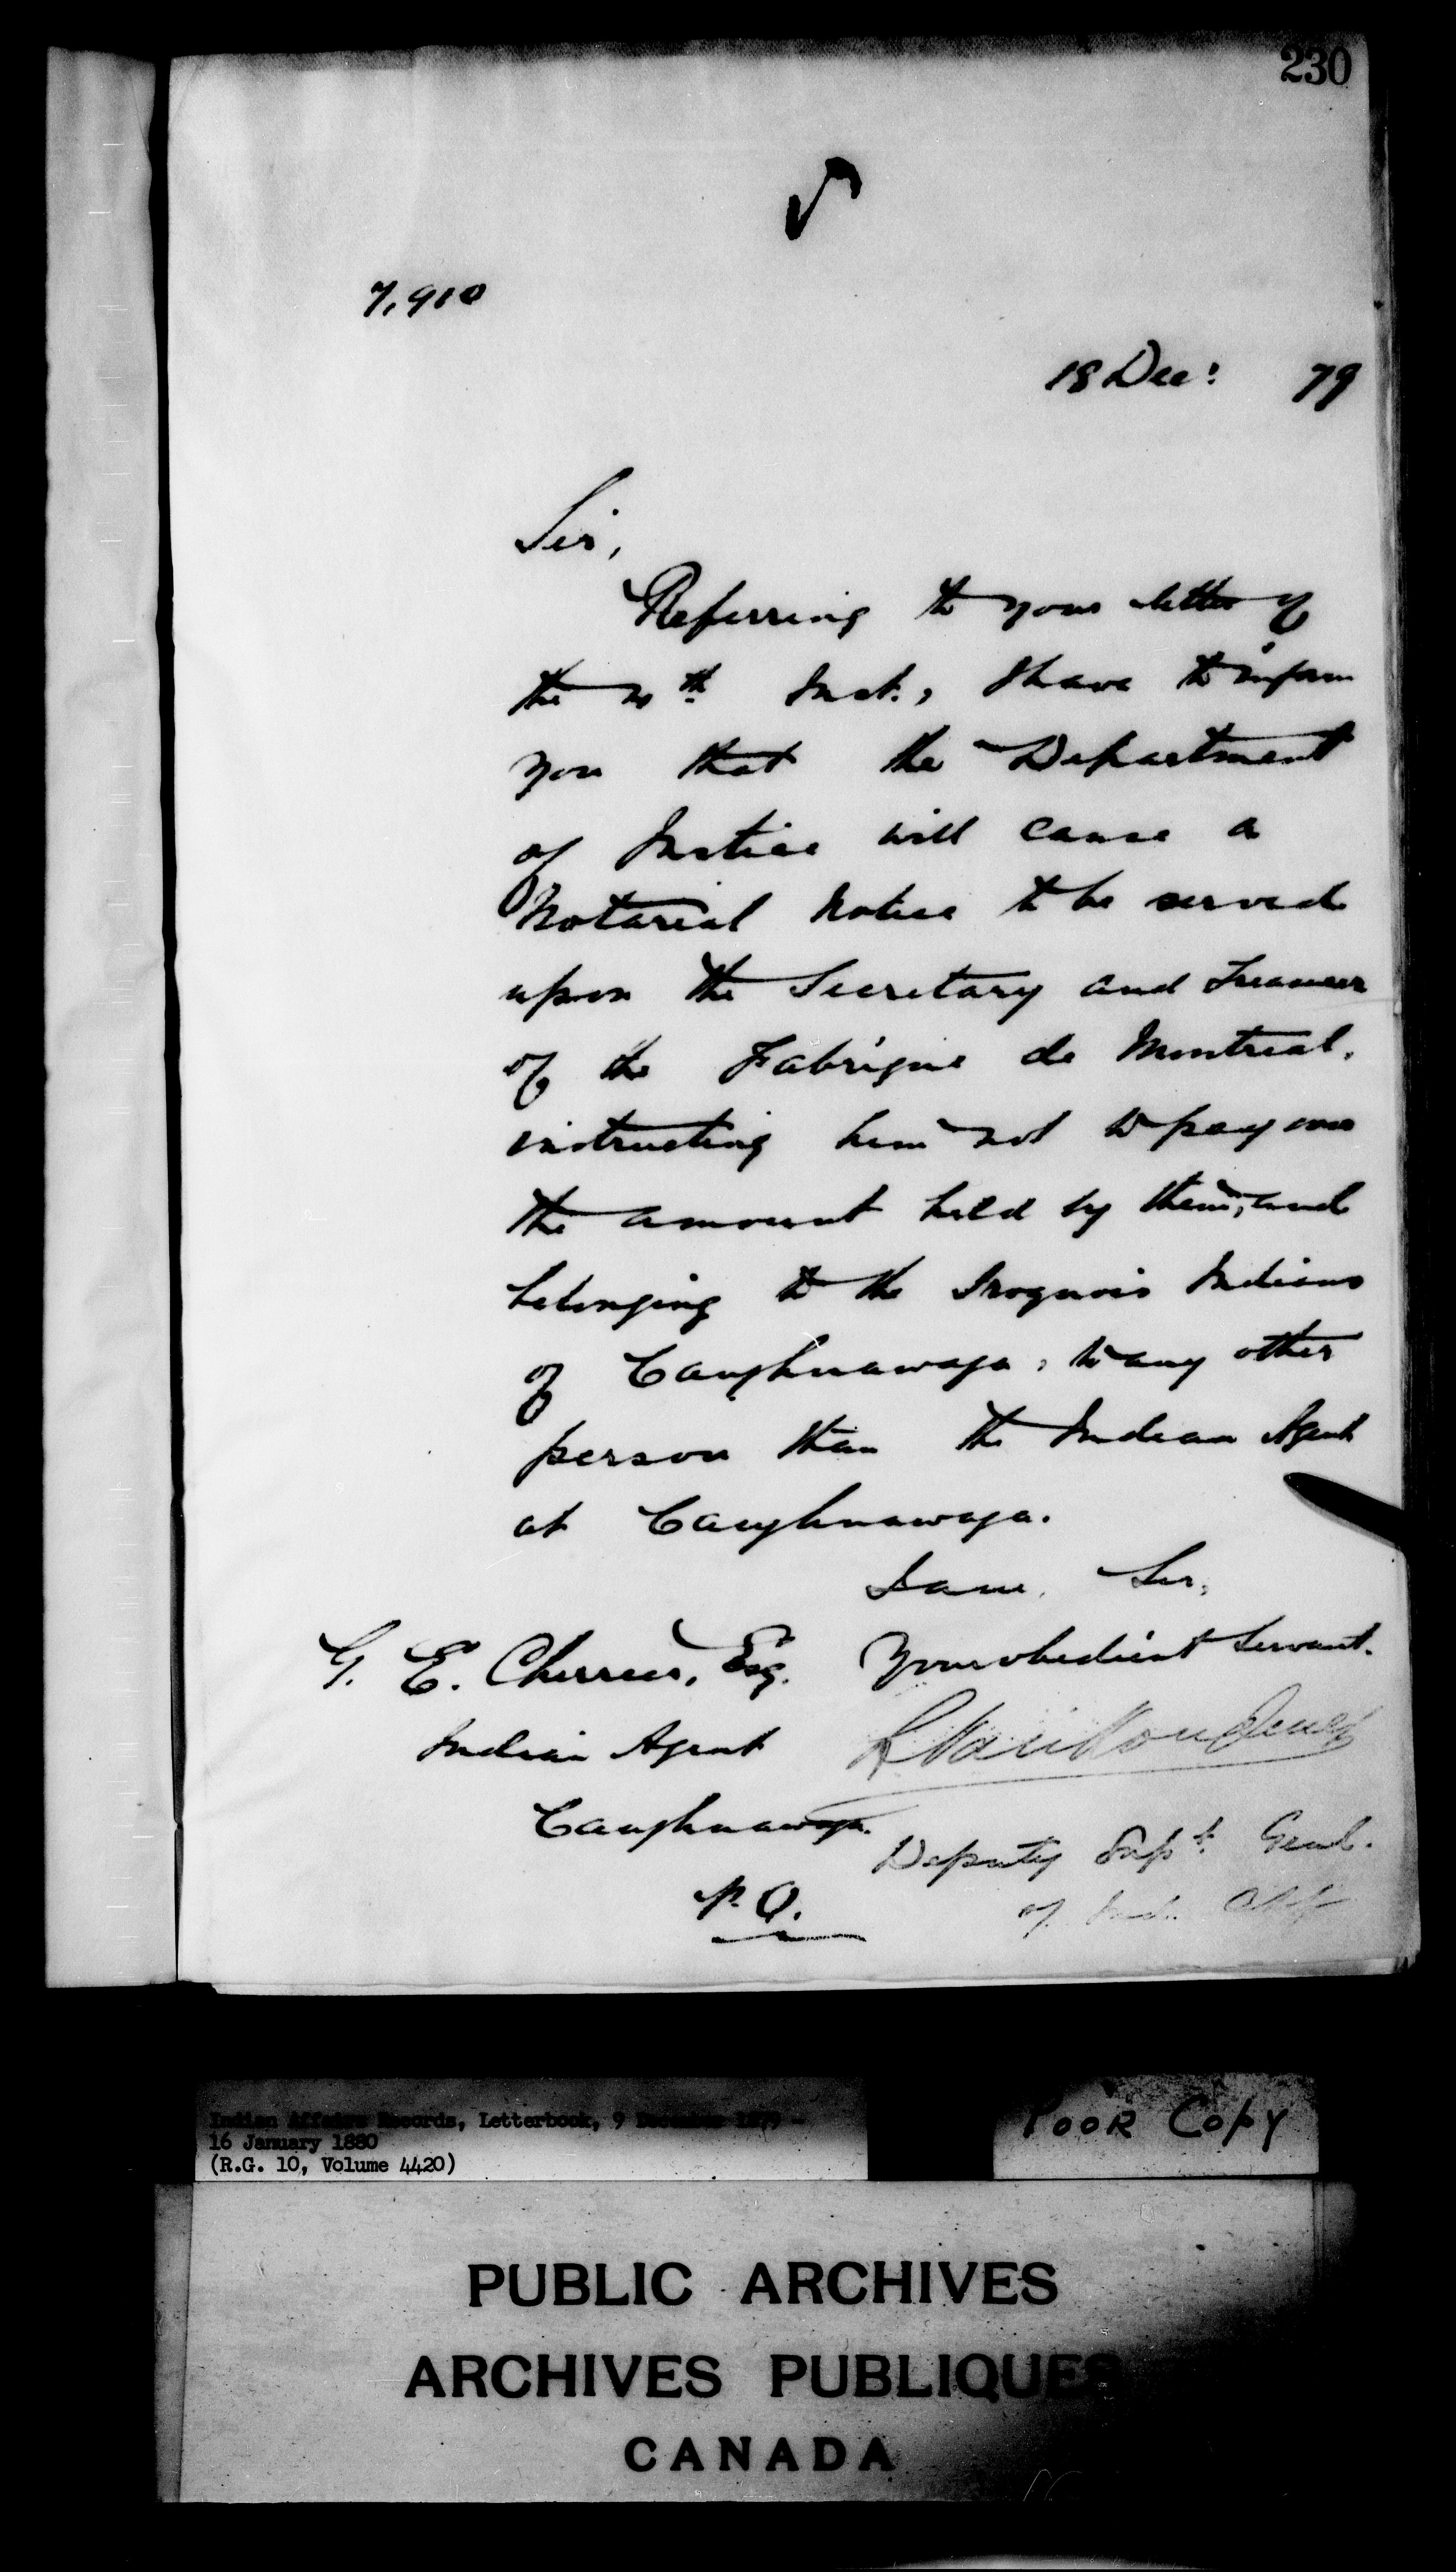 230
7,910
18 Dec: 79
Sir,
Referring to your letter of
the th Inst., I have to inform
you that the Department
of Justice will cause a
Notarial Notice to be served
upon the Secretary and Treasurer
of the Fabrique de Montreal,
instructing him not to pay over
the amount held by them, and
belonging to the Iroquois Indians
of Caughnawaga, to any other
person than the Indian Agent
at Caughnawaga.
I am, Sir,
Your obedient Servant.
G. E. Cherrier, Esq.
Indian Agent
L VanKoughnet
Caughnawaga.
Deputy Supt. Genl.
of Ind. Aff
P.Q.
Indian Affairs Records, Letterbook, 9 December 1879 -
16 January 1880
(R.G. 10, Volume 4420)
POOR COPY
PUBLIC ARCHIVES
ARCHIVES PUBLIQUES
CANADA